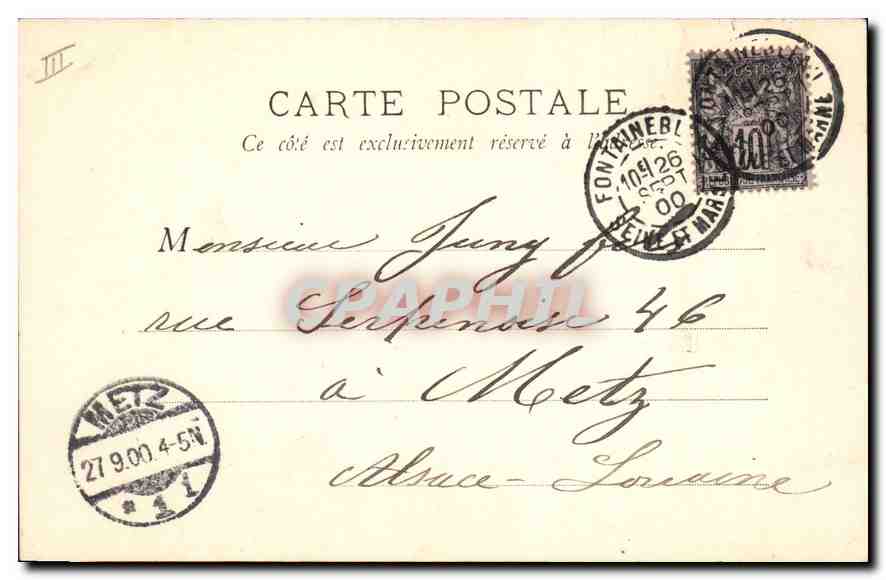 III
CARTE POSTALE
Ce côté est exclusivement réservé à l'adresse.
POSTES
10
FONTAINEBLEAU
10E 26
SEPT
00
SEINE ET MARNE
Monsieur Jung fils
rue Serpenoise 46
à Metz
Alsace-Lorraine
CPAPHIL
METZ
27.9.00.4-5N.
* 1 1